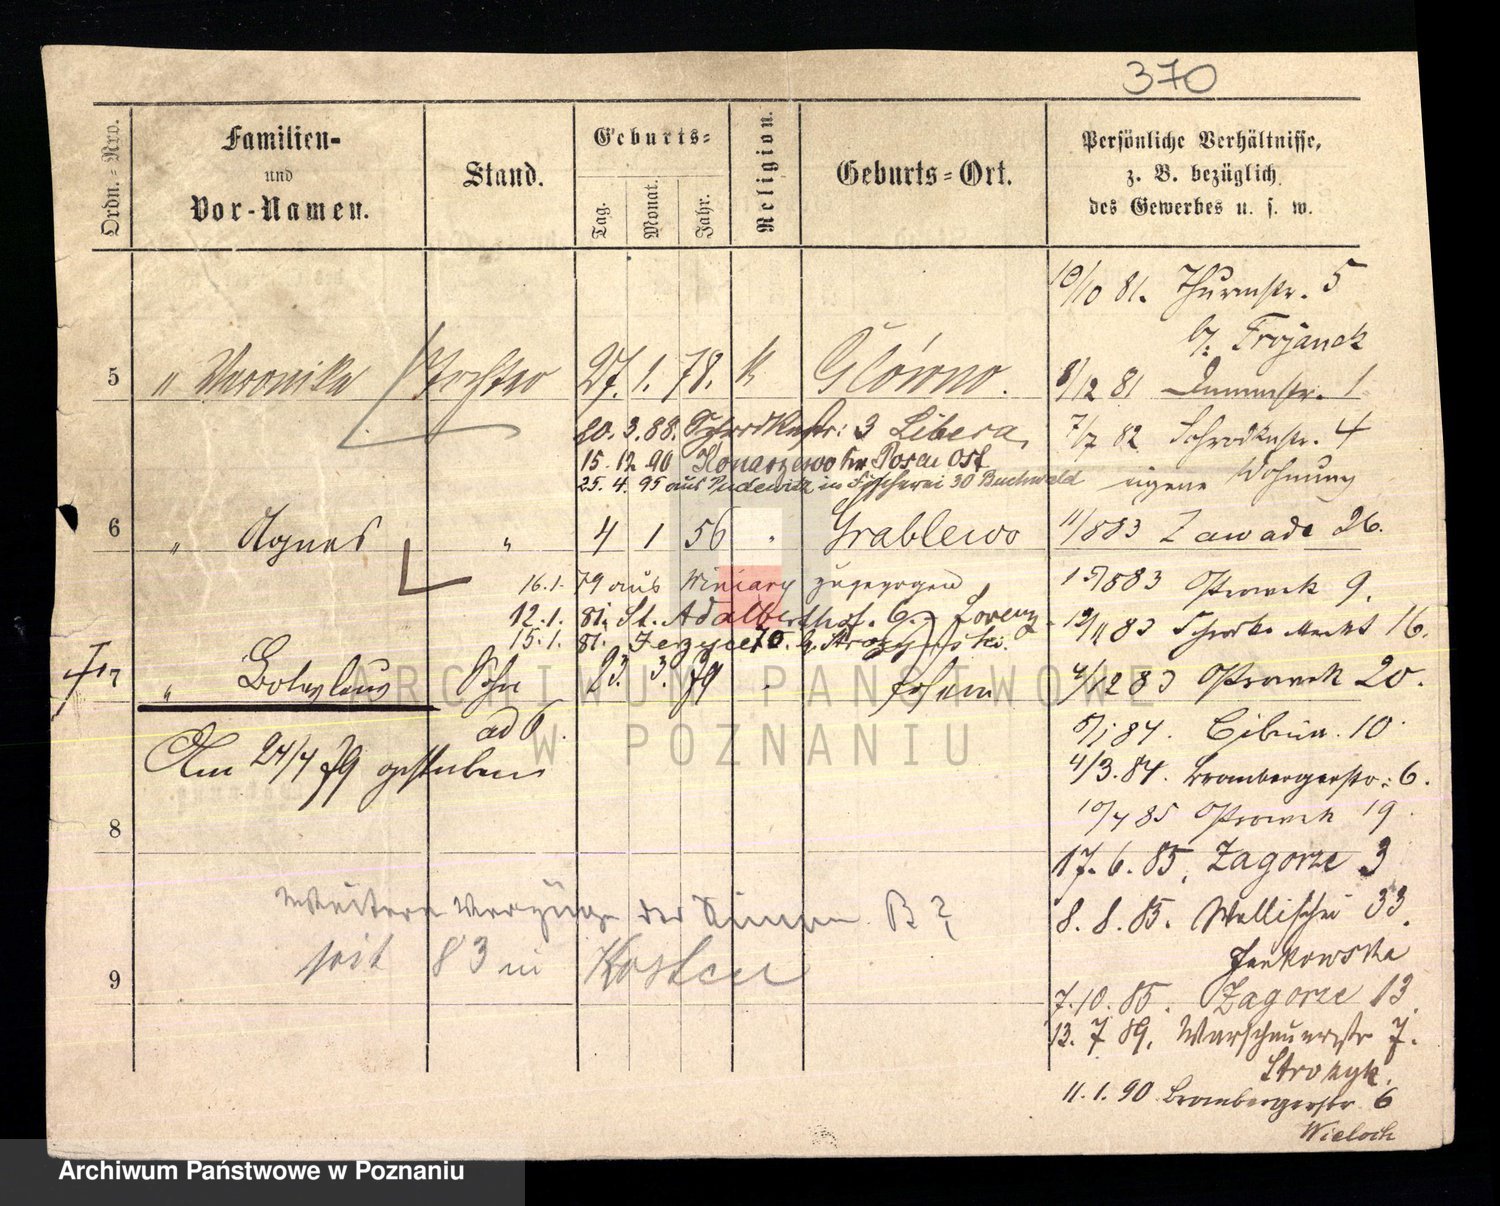 370
Ordn.-Nro.
Familien-
und
Vor-Namen.
Stand.
Geburts-
Tag.
Monat.
Jahr.
Religion.
Geburts-Ort.
Persönliche Verhältnisse,
z. B. bezüglich
des Gewerbes u. s. w.
5 " Veronika Tochter 27. 1. 78. k Główno.
20. 3. 88. Schrodkastr. 3 Libera
15. 12 90 Konarzewo Kr. Posen Ost
25. 4. 95 aus Pudewitz in Fischerei 30 Buchwald
6 " Agnes " 4 1 56 " Grablewo
16. 1. 79 aus Winiary zugezogen
12. 1. 81. St. Adalberthof. 6.
15. 1. 81. Jezyce 70.
† 7 " Boleslaus Sohn 23. 3. 79 " Posen
ad 6.
Am 24/4 79 gestorben
8
Weitere Verzüge der B?
seit 83 in Kosten
9
10/10 81. Thurmstr. 5
b/ Frojanek
8/12 81 Dammstr. 1
7/7 82 Schrodkastr. 4
eigene Wohnung
11/5 83 Zawade 26.
15/8 83 Ostrowek 9.
Schrodka Markt 16.
4/12 83 Ostrowek 20.
5/1 84. Cibina. 10.
4/3. 84. Brombergerstr. 6.
10/4 85 Ostrowek 19
17. 6. 85. Zagorze 3
8. 8. 85. Wallischei 33.
Jankowska
7. 10. 85. Zagorze 13
13. 7 89. Warschauerstr 7.
Strozyk.
11. 1. 90 Brombergerstr 6
Wieloch
ARCHIWUM PAŃSTWOWE
W POZNANIU
Archiwum Państwowe w Poznaniu